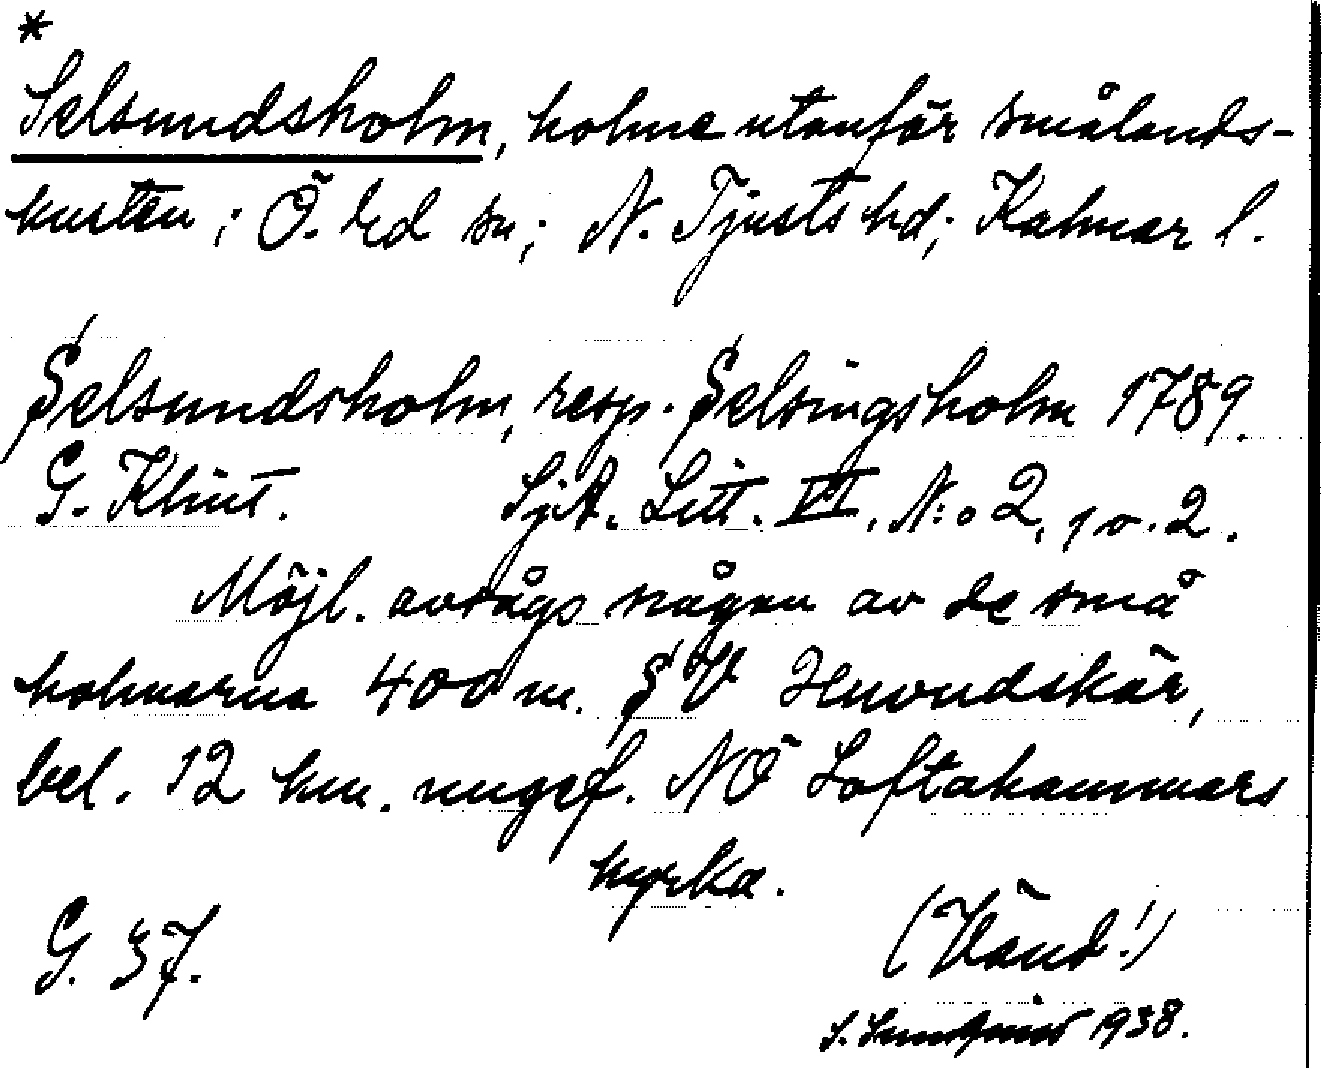 *
Selsundsholm, holme utanför smålands-
kusten; Ö. Ed sn; N. Tjusts hd; Kalmar l.
Selsundsholm, resp. Selsingsholm 1789.
G. Klint. SjA. Litt. VI. N:o 2, 1 o. 2.
Möjl. avsågs någon av de små
holmarna 400 m. SV Huvudskär,
bel. 12 km. ungef. NÖ Loftahammars
kyrka.
G. 37. (Vänd!)
S. 1938.